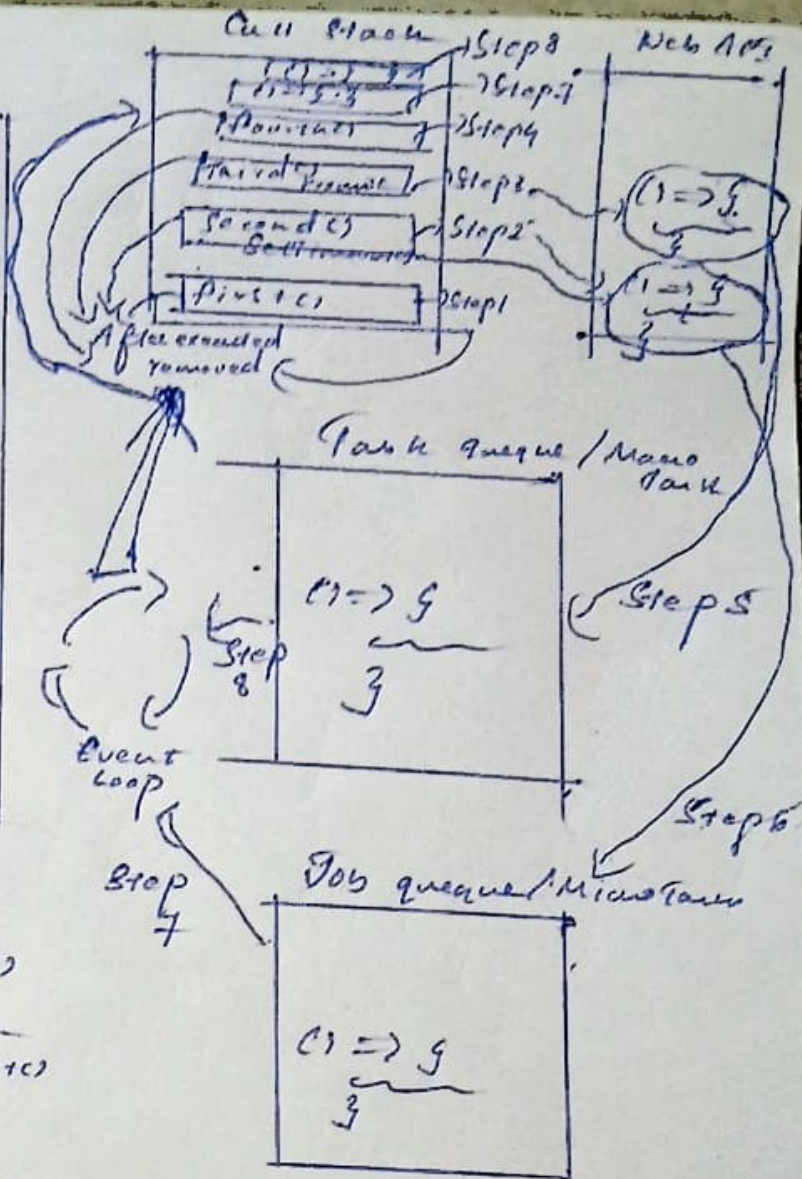 Call Stack
Web APIs
() => {
}
→ Step 8
() => { }
→ Step 7
→ Step 4
Third()
Promise
→ Step 3
Second()
→ Step 2
First()
→ Step 1
() => {
}
() => {
}
After executed
removed
Task queque / Macro
Task
() => {
}
Step 5
Step
8
Event
Loop
Step 6
Step
7
Job queque / MicroTask
() => {
}